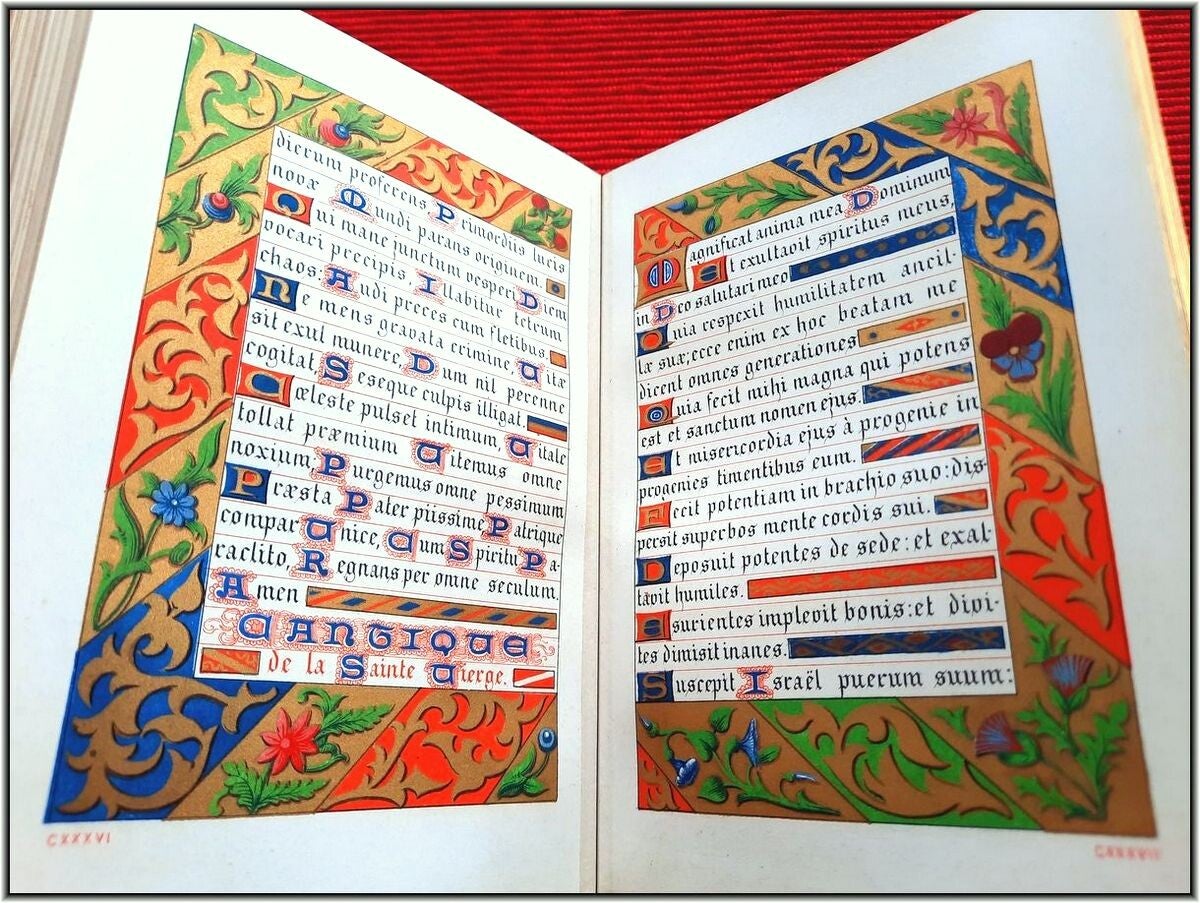 dierum proferens Primordiis lucis
novæ Mundi parans originem.
Qui mane junctum vesperi Diem
vocari precipis Illabitur tetrum
chaos: Audi preces cum fletibus.
Ne mens gravata crimine, Vitæ
sit exul munere, Dum nil perenne
cogitat Seseque culpis illigat.
Cæleste pulset intimum, Vitale
tollat præmium Vitemus omne
noxium: Purgemus omne pessimum
Præsta Pater piissime Patrique
compar Unice, Cum Spiritu Pa-
raclito, Regnans per omne seculum.
Amen
CANTIQUE
de la Sainte Vierge.
CXXXVI
Magnificat anima mea Dominum
Et exultavit spiritus meus,
in Deo salutari meo
Quia respexit humilitatem ancil-
læ suæ; ecce enim ex hoc beatam me
dicent omnes generationes
Quia fecit mihi magna qui potens
est et sanctum nomen ejus.
Et misericordia ejus à progenie in
progenies timentibus eum.
Fecit potentiam in brachio suo: dis-
persit superbos mente cordis sui.
Deposuit potentes de sede: et exal-
tavit humiles.
Esurientes implevit bonis: et divi-
tes dimisit inanes.
Suscepit Israël puerum suum:
CXXXVII